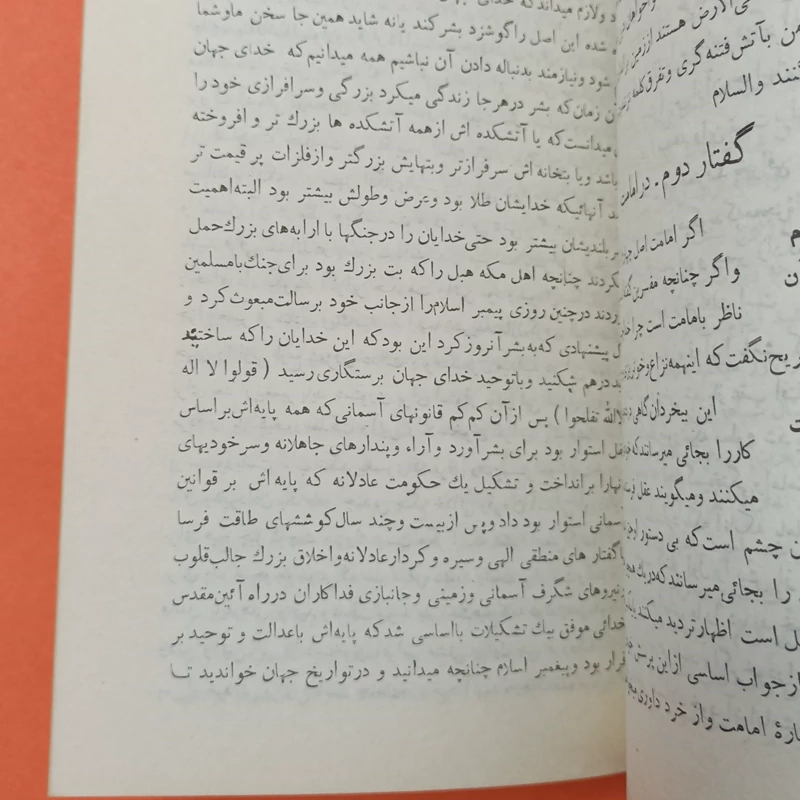 و لازم میداند که خدای
شده این اصل را گوشزد بشر کند یا نه شاید همین جا سخن ما و شما
شود و نیازمند بدنباله دادن آن نباشیم همه میدانیم که خدای جهان
زمان که بشر در هر جا زندگی میکرد بزرگی و سرافرازی خود را
میدانست که یا آتشکده اش از همه آتشکده ها بزرك تر و افروخته
باشد و یا بتخانه اش سرفرازتر و بتهایش بزرگتر و از فلزات پر قیمت تر
آنهائیکه خدایشان طلا بود و عرض و طولش بیشتر بود البته اهمیت
بلندیشان بیشتر بود حتی خدایان را در جنگها با ارابه‌های بزرك حمل
میکردند چنانچه اهل مکه هبل را که بت بزرك بود برای جنك با مسلمین
در چنین روزی پیمبر اسلام را از جانب خود برسالت مبعوث کرد و
پیشنهادی که به بشر آنروز کرد این بود که این خدایان را که ساختید
درهم شکنید و با توحید خدای جهان برستگاری رسید ( قولوا لا اله
الا الله تفلحوا ) پس از آن کم کم قانونهای آسمانی که همه پایه‌اش بر اساس
استوار بود برای بشر آورد و آراء و پندارهای جاهلانه و سرخودیهای
برانداخت و تشکیل یك حکومت عادلانه که پایه اش بر قوانین
آسمانی استوار بود داد و پس از بیست و چند سال کوششهای طاقت فرسا
با گفتار های منطقی الهی و سیره و کردار عادلانه و اخلاق بزرك جالب قلوب
نیروهای شگرف آسمانی و زمینی و جانبازی فداکاران در راه آئین مقدس
خدائی موفق بیك تشکیلات با اساسی شد که پایه‌اش با عدالت و توحید بر
قرار بود و پیغمبر اسلام چنانچه میدانید و در تواریخ جهان خواندید تا
الارض هستند از زمین
بآتش فتنه‌گری و تفرق کلمه
والسلام
گفتار دوم . در امامت
اگر امامت اصل
و اگر چنانچه مفسرین
ناظر بامامت است چرا
نگفت که اینهمه نزاع و
این بیخردان گاهی
کار را بجائی میرسانند که
میکنند و میگویند عقل
چشم است که بی دستور او
را بجائی میرسانند که در یك
است اظهار تردید میکنند
از جواب اساسی از این پرسش
امامت و از خرد داوری